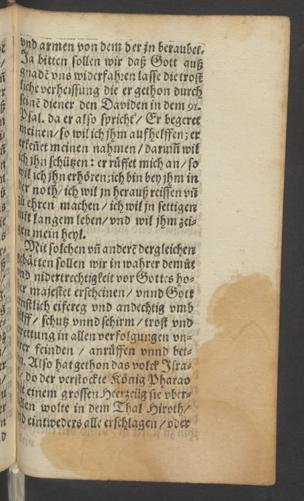 vnd armen von dem der jn beraubet.
Ja bitten sollen wir daß Gott auß
gnadē vns widerfahren lasse die tröst
liche verheissung die er gethon durch
seinē diener den Daviden in dem 91.
Psal. da er also spricht / Er begeret
meinen / so wil ich jhm auffhelffen; er
erkeñet meinen nahmen / darumb wil
ich jhn schützen: er rüffet mich an / so
wil ich jhn erhören; ich bin bey jhm in
der noth / ich wil jn herauß reissen vñ
zů ehren machen / ich wil jn settigen
mit langem leben / vnd wil jhm zei-
gen mein heyl.
Mit solchen vñ anderē dergleichen
gebätten sollen wir in wahrer demůt
vnd nidertrechtigkeit vor Gottes ho-
her majestet erscheinen / vnnd Gott
ernstlich eifereg vnd andechtig vmb
hilff / schutz vnnd schirm / trost vnd
rettung in allen verfolgungen vn-
serer feinden / anrüffen vnnd bet-
ten. Also hat gethon das volck Isra-
el / do der verstockte König Pharao
mit einem grossen Heerzeüg sie vber-
fallen wolte in dem Thal Hiroth /
vnd eintweders alle erschlagen / oder